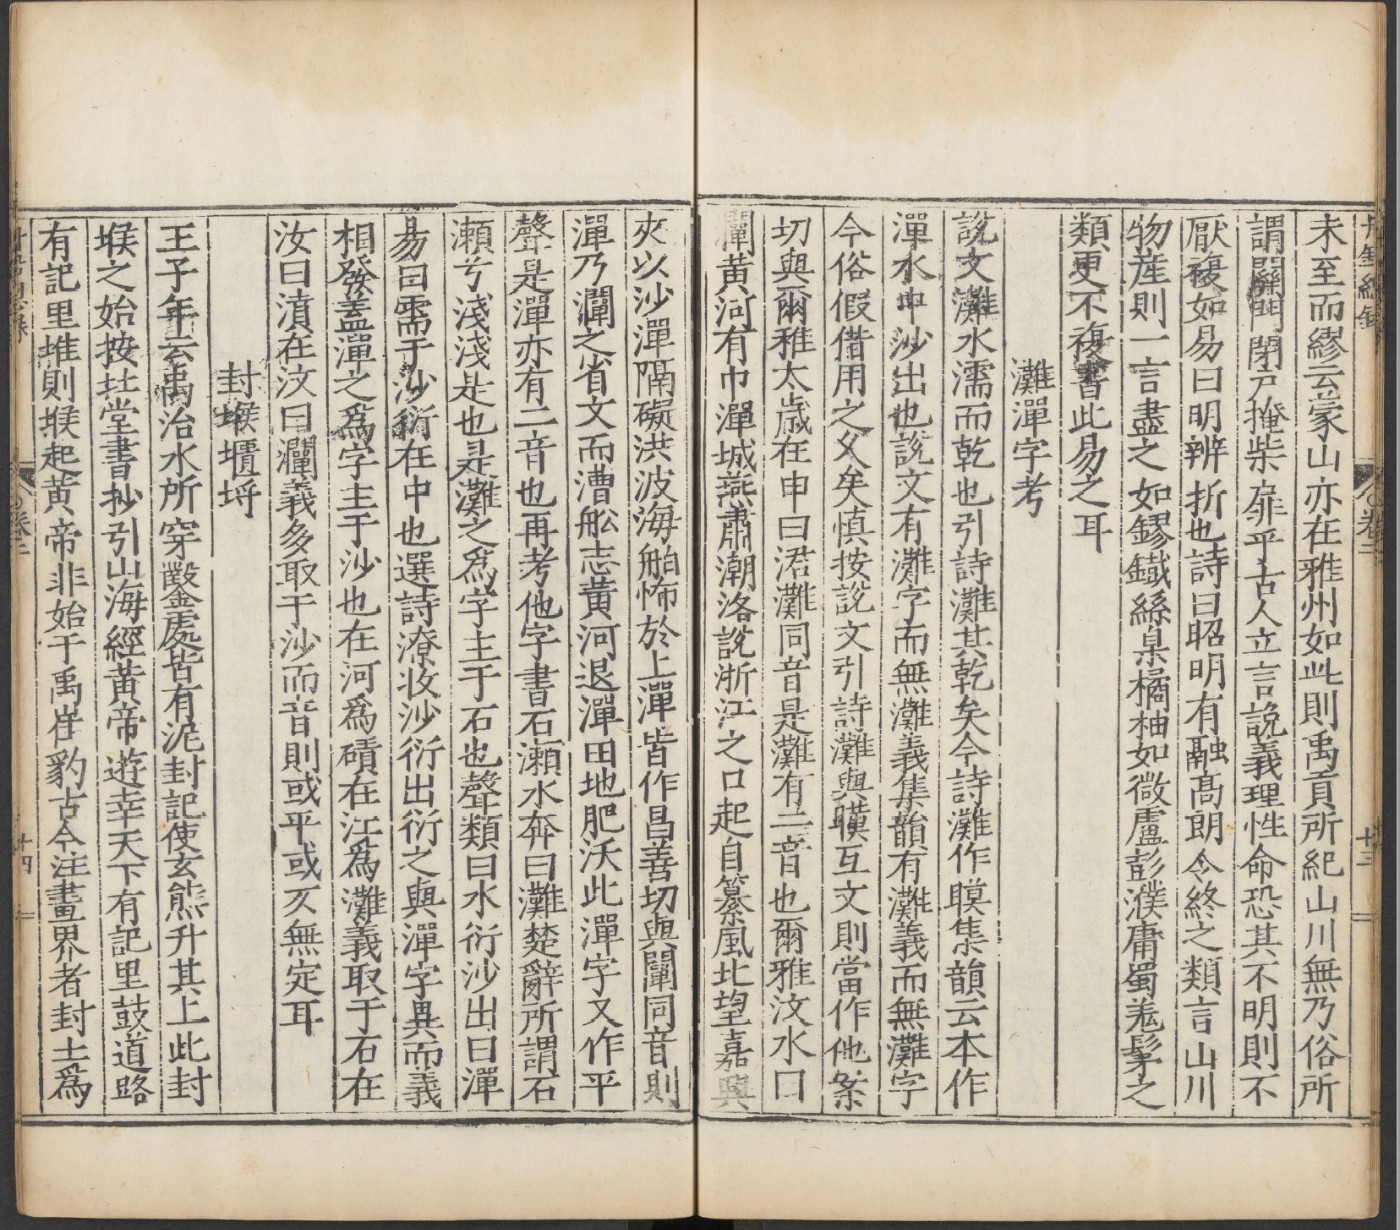 丹鉛續錄
卷二
十三
未至而繆云蒙山亦在雅州如此則禹貢所紀山川無乃俗所
謂關門閉戶掩柴扉乎古人立言說義理性命恐其不明則不
厭複如易曰明辨折也詩曰昭明有融髙朗令終之類言山川
物産則一言盡之如鏐鐵絲枲橘柚如微盧彭濮庸蜀羗髳之
類更不複書此易之耳
灘潬字考
說文灘水濡而乾也引詩灘其乾矣今詩灘作暵集韻云本作
潬水中沙出也說文有灘字而無灘義集韻有灘義而無灘字
今俗假借用之久矣慎按說文引詩灘與暵互文則當作他案
切與爾雅太歲在申曰涒灘同音是灘有二音也爾雅汶水曰
灛黄河有巾潬城燕肅潮洛說浙江之口起自纂風北望嘉興
夾以沙潬隔礙洪波海舶怖於上潬皆作昌善切與闡同音則
潬乃灛之省文而漕舩志黄河退潬田地肥沃此潬字又作平
聲是潬亦有二音也再考他字書石瀬水奔曰灘楚辭所謂石
瀬兮淺淺是也是灘之爲字主于石也聲類曰水衍沙出曰潬
易曰需于沙衍在中也選詩潦收沙衍出衍之與潬字異而義
相發葢潬之爲字主于沙也在河爲磧在江爲灘義取于石在
汝曰濆在汶曰灛義多取于沙而音則或平或仄無定耳
封堠堰埒
王子年云禹治水所穿鑿處皆有泥封記使玄熊升其上此封
堠之始按北堂書抄引山海經黄帝遊幸天下有記里鼓道路
有記里堆則堠起黄帝非始于禹崔豹古今注畫界者封土爲
卷二
十四